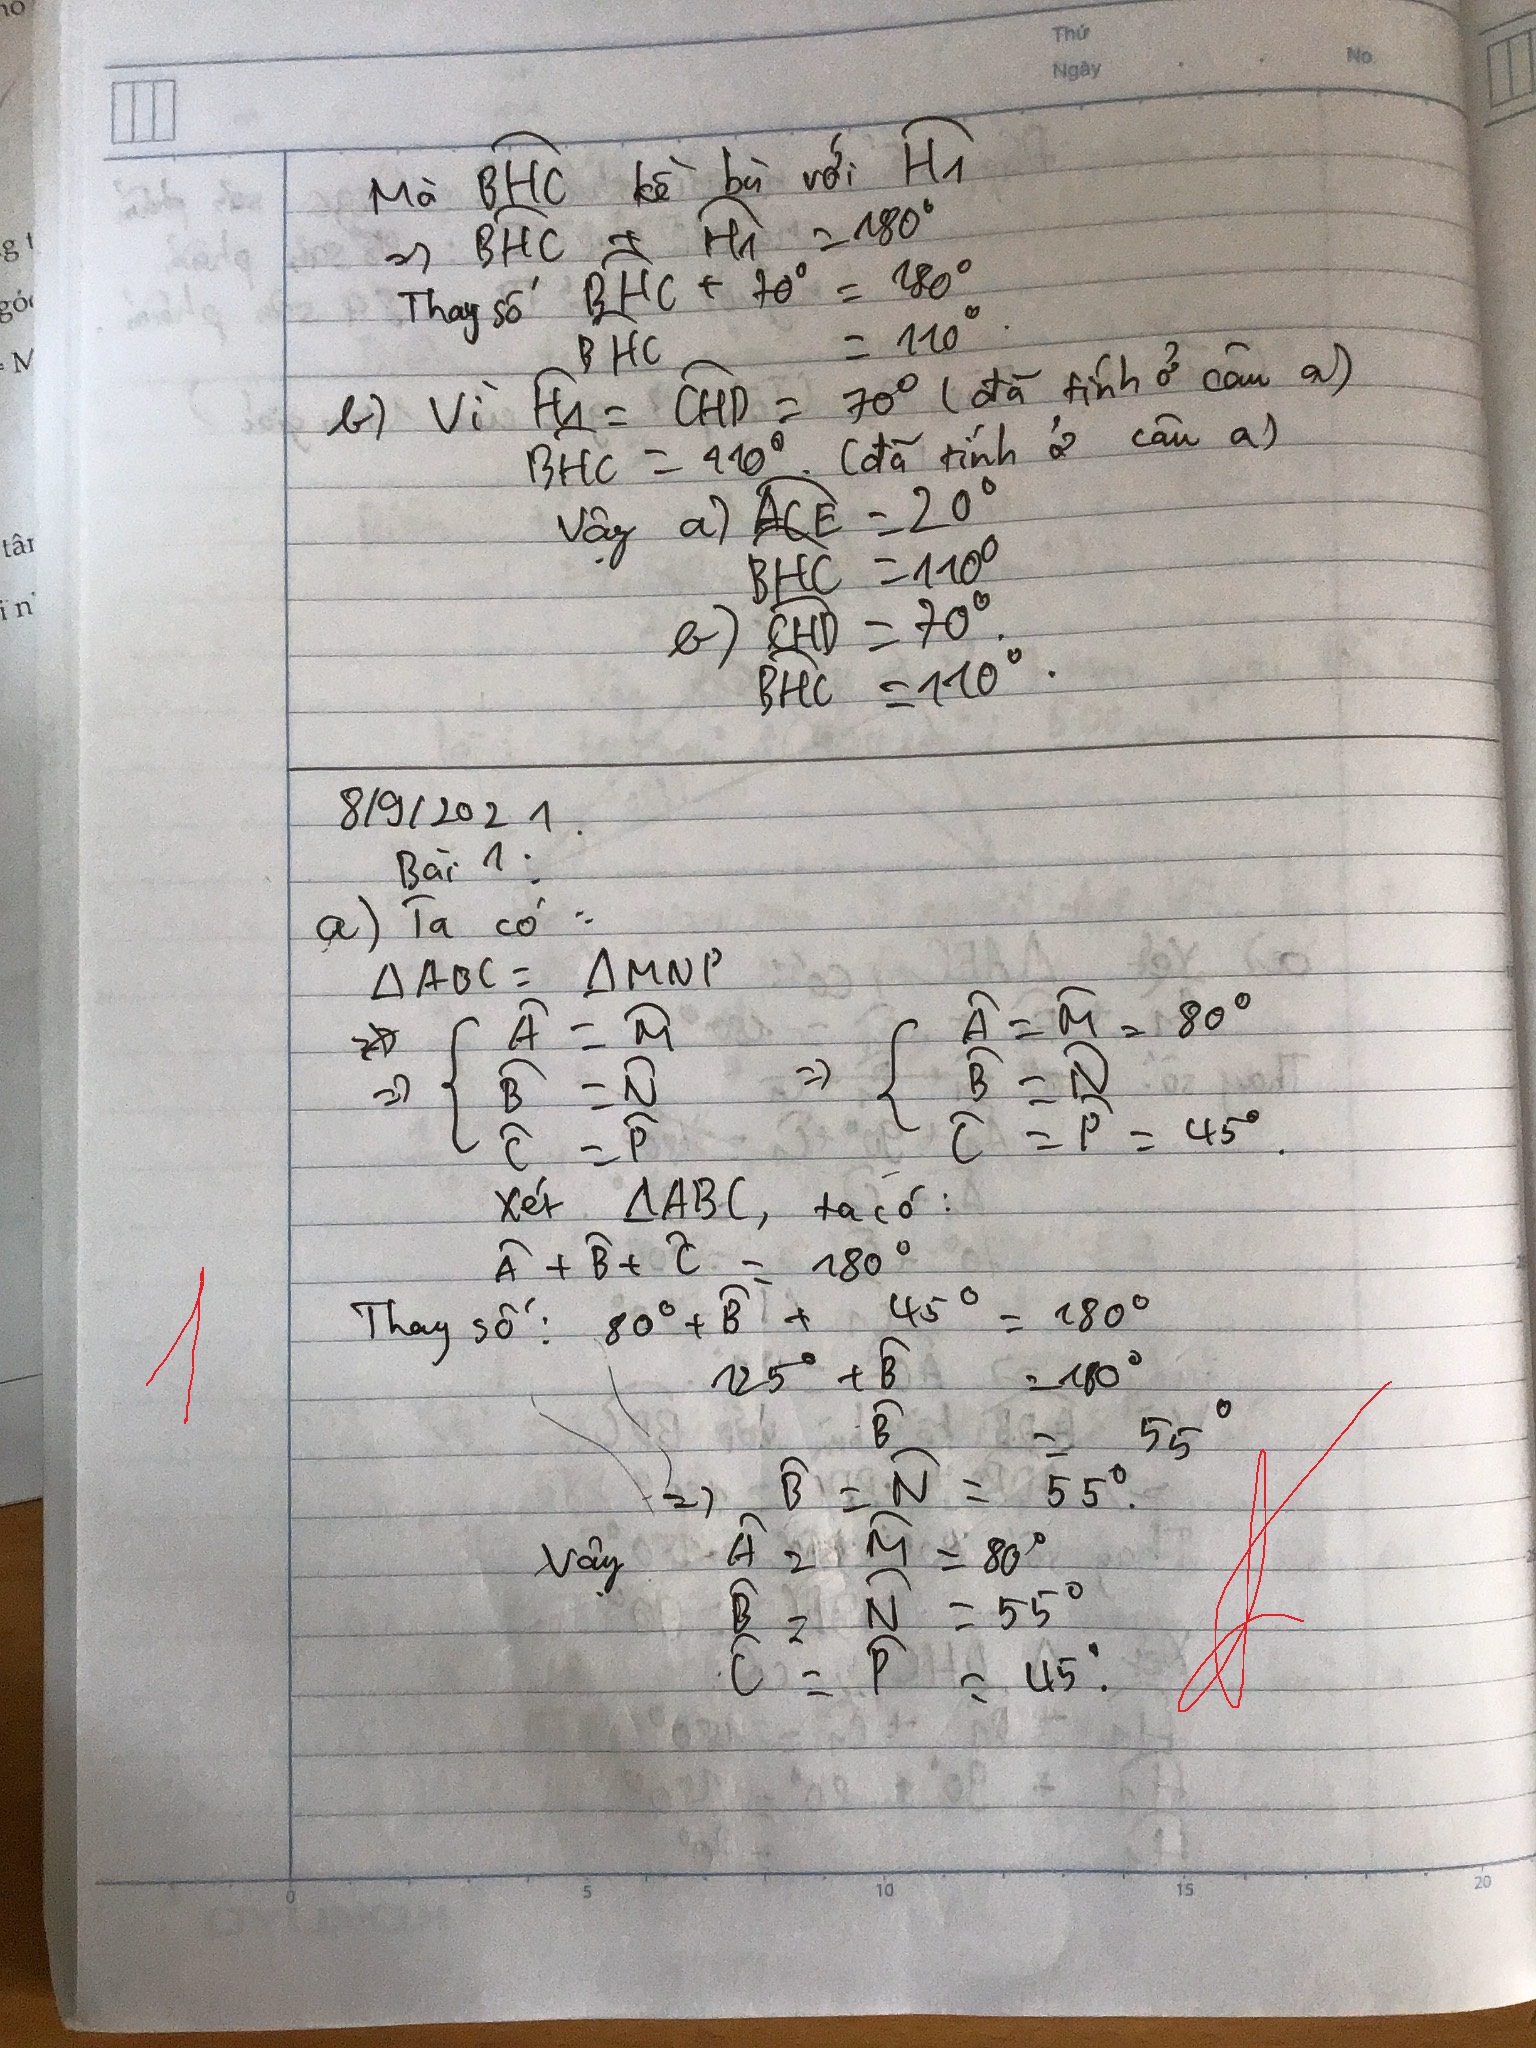 Thứ
Ngày No
Mà BHC kề bù với H1
=> BHC + H1 = 180°
Thay số BHC + 70° = 180°
BHC = 110°.
b) Vì H1 = CHD = 70° (đã tính ở câu a)
BHC = 110°. (đã tính ở câu a)
Vậy a) ACE = 20°
BHC = 110°
b) CHD = 70°.
BHC = 110°.
8/9/2021.
Bài 1:
a) Ta có:
ΔABC = ΔMNP
=> { Â = M̂ => { Â = M̂ = 80°
B̂ = N̂ B̂ = N̂
Ĉ = P̂ Ĉ = P̂ = 45°.
Xét ΔABC, ta có:
Â + B̂ + Ĉ = 180°
Thay số: 80° + B̂ + 45° = 180°
125° + B̂ = 180°
B̂ = 55°
=> B̂ = N̂ = 55°.
Vậy Â = M̂ = 80°
B̂ = N̂ = 55°
Ĉ = P̂ = 45°.
1
0 5 10 15 20